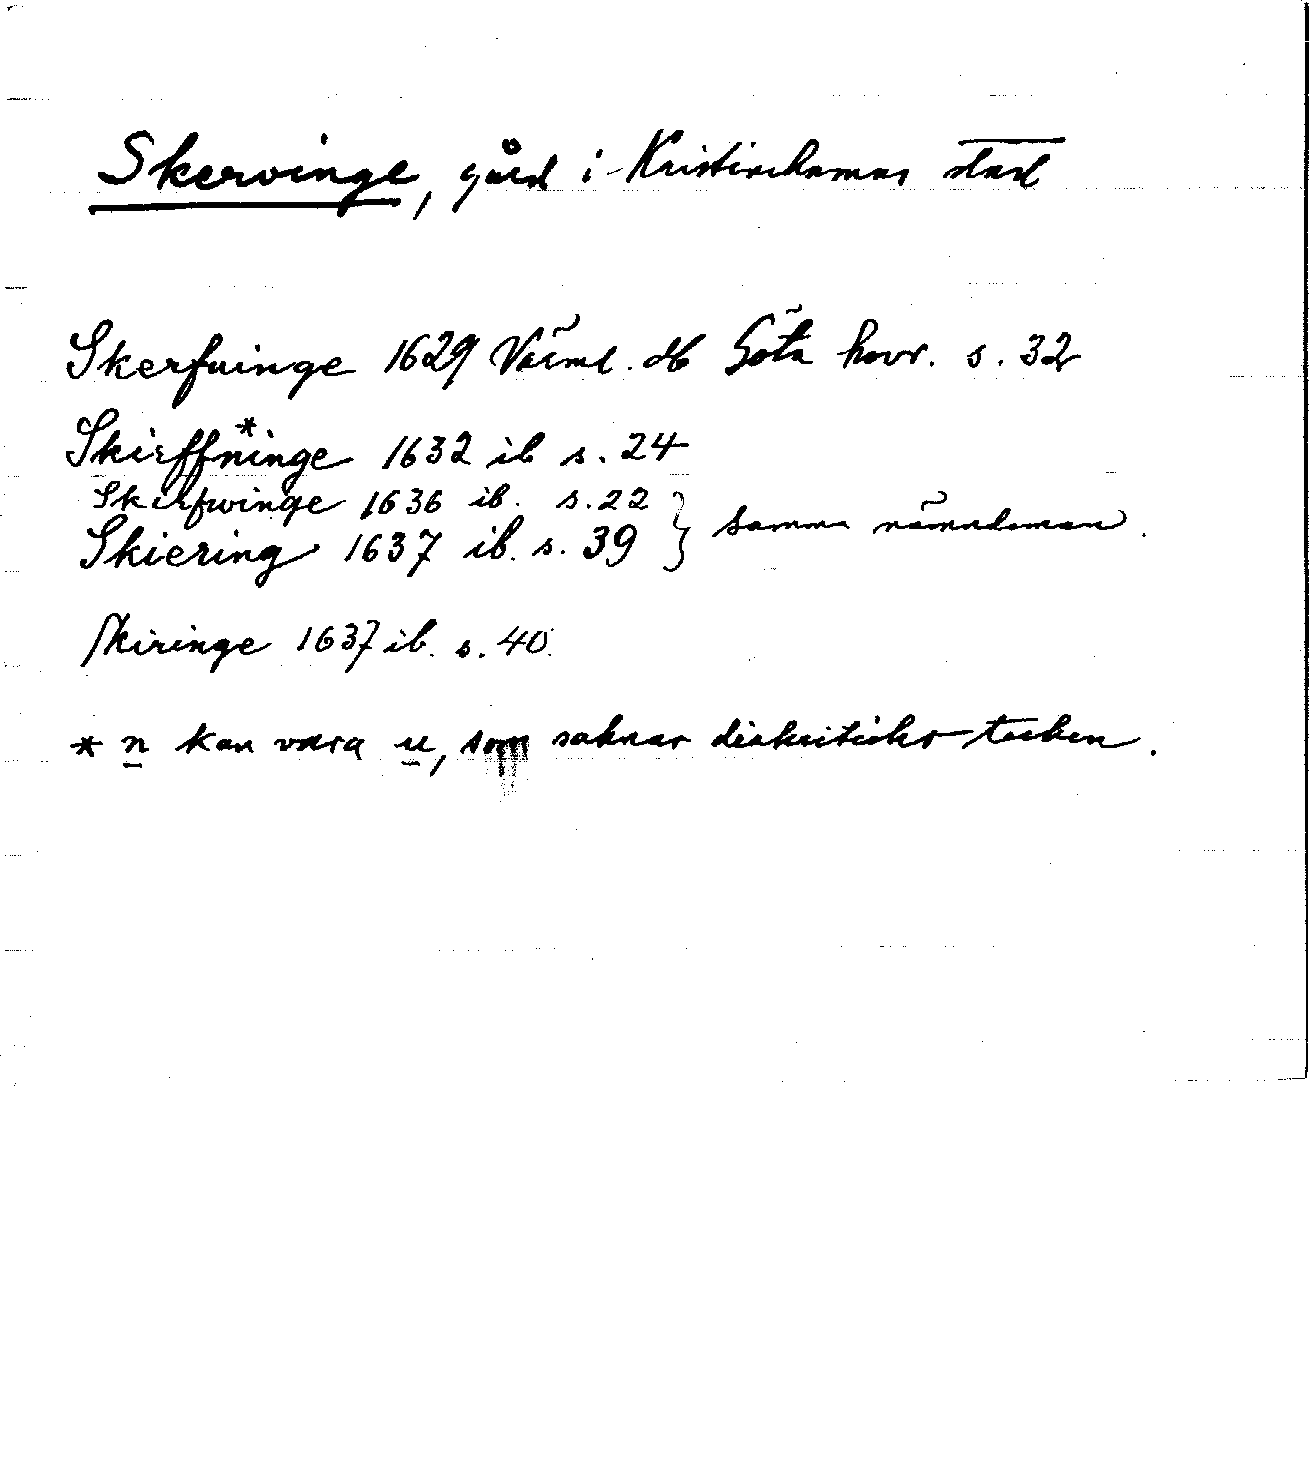 Skervinge, gård i Kristinehamns stad
Skerfuinge 1629 Värml. db Göta hovr. s. 32
Skirffninge* 1632 ib s. 24
Skerfwinge 1636 ib. s. 22
Skiering 1637 ib. s. 39 } samma nämndeman.
Skiringe 1637 ib. s. 40.
* n kan vara u, som saknar diakritiskt tecken.